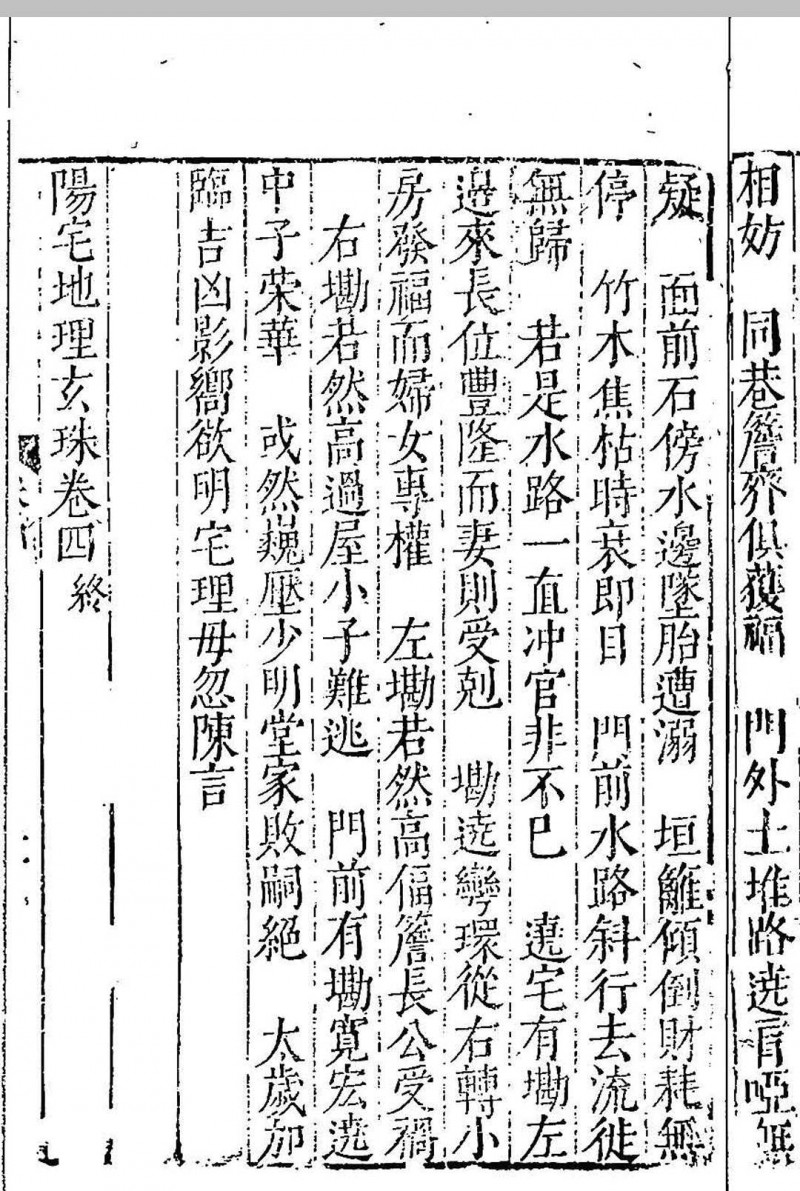 相妨　同巷簷齊俱獲福　門外土堆路遶盲啞無
疑　面前石傍水邊墜胎遭溺　垣籬傾倒財耗無
停　竹木焦枯時衰即目　門前水路斜行去流徙
無歸　若是水路一直冲官非不已　遶宅有墈左
邉來長位豐隆而妻則受剋　墈遶彎環從右轉小
房發福而婦女專權　左墈若然高偪簷長公受禍
右墈若然高過屋小子難逃　門前有墈寬宏遶
中子荣華　或然巍壓少明堂家敗嗣絕　太歲加
臨吉凶影嚮欲明宅理毋忽陳言
陽宅地理玄珠卷四終